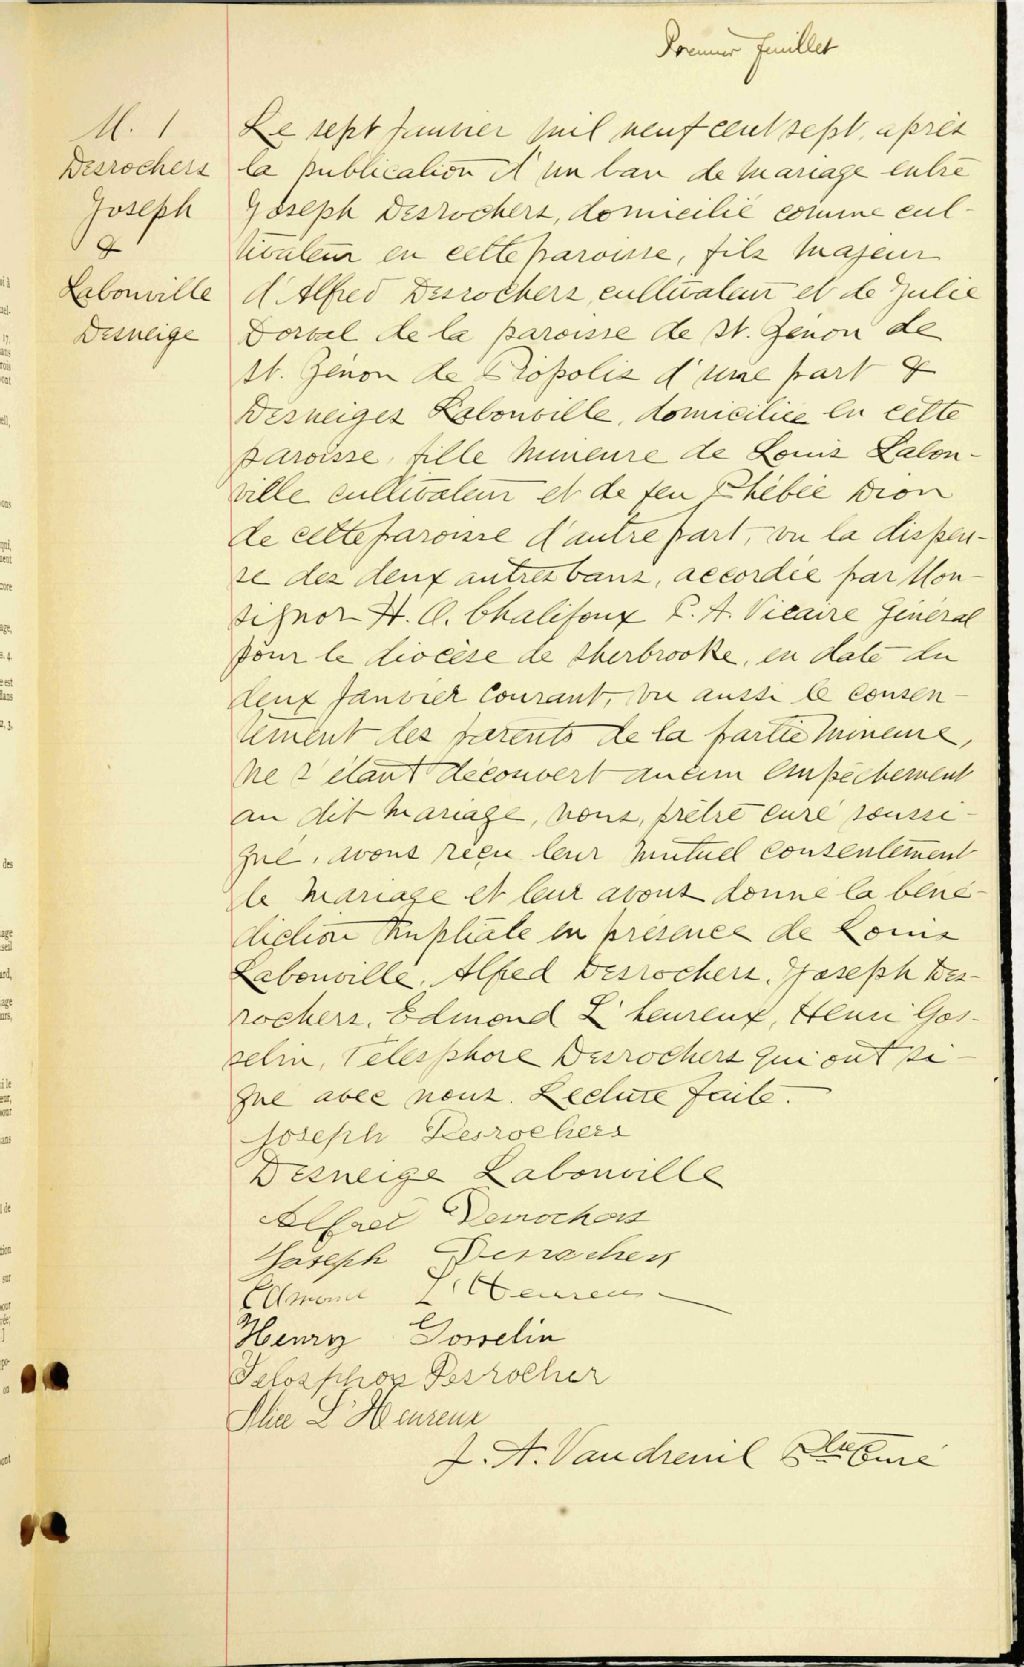 Premier feuillet
M. 1
Desrochers
Joseph
&
Labonville
Desneige
Le sept Janvier mil neuf cent sept, après
la publication d'un ban de mariage entre
Joseph Desrochers, domicilié comme cul-
tivateur en cette paroisse, fils majeur
d'Alfred Desrochers cultivateur et de Julie
Dorval de la paroisse de St. Zénon de
St. Zénon de Piopolis d'une part &
Desneiges Labonville, domiciliée en cette
paroisse, fille mineure de Louis Labon-
ville cultivateur et de feu Phébée Dion
de cette paroisse d'autre part, vu la dispen-
se des deux autres bans, accordée par Mon-
signor H. O. Chalifoux P. A. Vicaire Général
pour le diocèse de Sherbrooke, en date du
deux Janvier courant, vu aussi le consen-
tement des parents de la partie mineure,
ne s'étant découvert aucun empêchement
au dit mariage, nous, prêtre curé soussi-
gné, avons reçu leur mutuel consentement
de mariage et leur avons donné la béné-
diction nuptiale en présence de Louis
Labonville, Alfred Desrochers, Joseph Des-
rochers, Edmond L'heureux, Henri Gos-
selin, Télesphore Desrochers qui ont si-
gné avec nous. Lecture faite.
Joseph Desrochers
Desneige Labonville
Alfred Desrochers
Joseph Desrochers
Edmond L'Heureux
Henry Gosselin
Telosphor Desrocher
Alice L'Heureux
J. A. Vaudreuil Ptre Curé